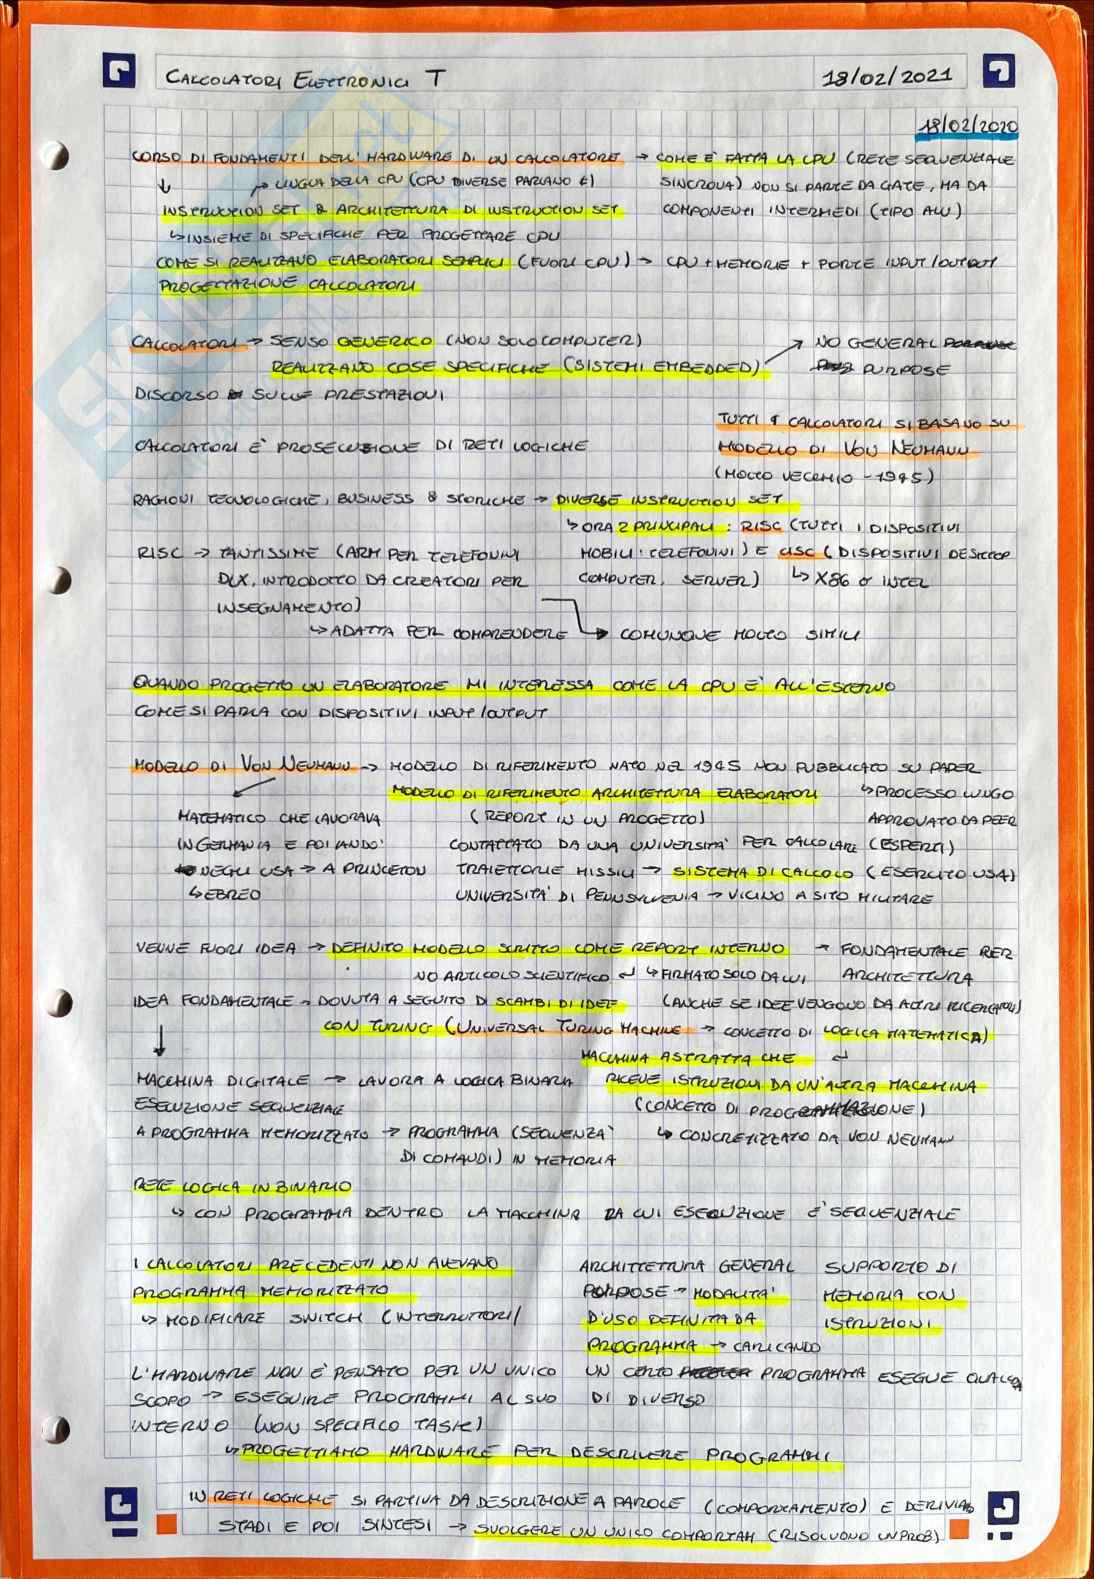 CALCOLATORI ELETTRONICI T 18/02/2021
18/02/2020
CORSO DI FONDAMENTI DELL'HARDWARE DI UN CALCOLATORE → COME È FATTA LA CPU (RETE SEQUENZIALE
↳ LINGUA DELLA CPU (CPU DIVERSE PARLANO ≠) SINCRONA) NON SI PARTE DA GATE, MA DA
INSTRUCTION SET & ARCHITETTURA DI INSTRUCTION SET COMPONENTI INTERMEDI (TIPO ALU)
↳ INSIEME DI SPECIFICHE PER PROGETTARE CPU
COME SI REALIZZANO ELABORATORI SEMPLICI (FUORI CPU) → CPU + MEMORIE + PORTE INPUT/OUTPUT
PROGETTAZIONE CALCOLATORI
CALCOLATORI → SENSO GENERICO (NON SOLO COMPUTER) NO GENERAL
REALIZZANO COSE SPECIFICHE (SISTEMI EMBEDDED) PURPOSE
DISCORSO SULLE PRESTAZIONI
TUTTI I CALCOLATORI SI BASANO SU
CALCOLATORI È PROSECUZIONE DI RETI LOGICHE MODELLO DI VON NEUMANN
(MOLTO VECCHIO - 1945)
RAGIONI TECNOLOGICHE, BUSINESS & STORICHE → DIVERSE INSTRUCTION SET
↳ ORA 2 PRINCIPALI: RISC (TUTTI I DISPOSITIVI
RISC → TANTISSIME (ARM PER TELEFONINI MOBILI: TELEFONINI) E CISC (DISPOSITIVI DESKTOP
DLX, INTRODOTTO DA CREATORI PER COMPUTER, SERVER) ↳ X86 O INTEL
INSEGNAMENTO)
↳ ADATTA PER COMPRENDERE → COMUNQUE MOLTO SIMILI
QUANDO PROGETTO UN ELABORATORE MI INTERESSA COME LA CPU È ALL'ESTERNO
COME SI PARLA CON DISPOSITIVI INPUT/OUTPUT
MODELLO DI VON NEUMANN → MODELLO DI RIFERIMENTO NATO NEL 1945 NON PUBBLICATO SU PAPER
MODELLO DI RIFERIMENTO ARCHITETTURA ELABORATORI ↳ PROCESSO LUNGO
MATEMATICO CHE LAVORAVA (REPORT IN UN PROGETTO) APPROVATO DA PEER
IN GERMANIA E POI ANDO' CONTATTATO DA UNA UNIVERSITA' PER CALCOLARE (ESPERTI)
NEGLI USA → A PRINCETON TRAIETTORIE MISSILI → SISTEMA DI CALCOLO (ESERCITO USA)
↳ EBREO UNIVERSITA' DI PENNSYLVENIA → VICINO A SITO MILITARE
VENNE FUORI IDEA → DEFINITO MODELLO SCRITTO COME REPORT INTERNO → FONDAMENTALE PER
NO ARTICOLO SCIENTIFICO ↲ ↳ FIRMATO SOLO DA LUI ARCHITETTURA
IDEA FONDAMENTALE → DOVUTA A SEGUITO DI SCAMBI DI IDEE (ANCHE SE IDEE VENGONO DA ALTRI RICERCATORI)
CON TURING (UNIVERSAL TURING MACHINE → CONCETTO DI LOGICA MATEMATICA)
MACCHINA ASTRATTA CHE ↲
MACCHINA DIGITALE → LAVORA A LOGICA BINARIA RICEVE ISTRUZIONI DA UN'ALTRA MACCHINA
ESECUZIONE SEQUENZIALE (CONCETTO DI PROGRAMMAZIONE)
A PROGRAMMA MEMORIZZATO → PROGRAMMA (SEQUENZA ↳ CONCRETIZZATO DA VON NEUMANN
DI COMANDI) IN MEMORIA
RETE LOGICA IN BINARIO
↳ CON PROGRAMMA DENTRO LA MACCHINA LA CUI ESECUZIONE E' SEQUENZIALE
I CALCOLATORI PRECEDENTI NON AVEVANO ARCHITETTURA GENERAL SUPPORTO DI
PROGRAMMA MEMORIZZATO PURPOSE → MODALITA' MEMORIA CON
↳ MODIFICARE SWITCH (INTERRUTTORI) D'USO DEFINITA DA ISTRUZIONI
PROGRAMMA → CARICANDO
L'HARDWARE NON È PENSATO PER UN UNICO UN CERTO PROGRAMMA ESEGUE QUALCOSA
SCOPO → ESEGUIRE PROGRAMMI AL SUO DI DIVERSO
INTERNO (NON SPECIFICO TASK)
↳ PROGETTIAMO HARDWARE PER DESCRIVERE PROGRAMMI
IN RETI LOGICHE SI PARTIVA DA DESCRIZIONE A PAROLE (COMPORTAMENTO) E DERIVIAMO
STADI E POI SINTESI → SVOLGERE UN UNICO COMPORTAM (RISOLVONO UN PROB)